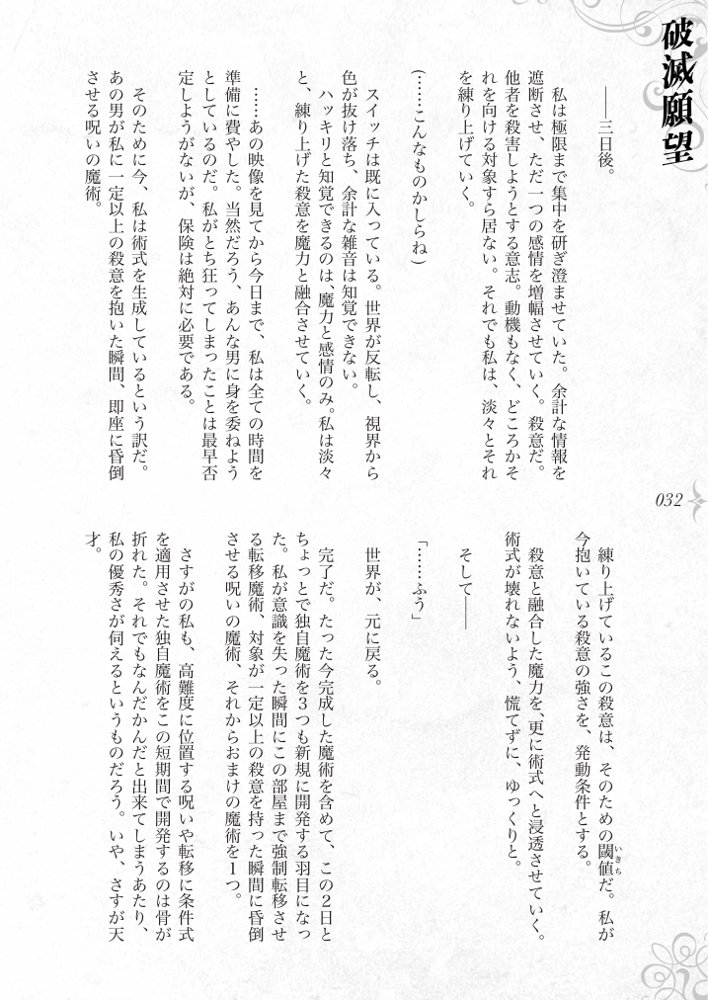 破滅願望
――三日後。
私は極限まで集中を研ぎ澄ませていた。余計な情報を
遮断させ、ただ一つの感情を増幅させていく。殺意だ。
他者を殺害しようとする意志。動機もなく、どころかそ
れを向ける対象すら居ない。それでも私は、淡々とそれ
を練り上げていく。
(……こんなものかしらね)
スイッチは既に入っている。世界が反転し、視界から
色が抜け落ち、余計な雑音は知覚できない。
ハッキリと知覚できるのは、魔力と感情のみ。私は淡々
と、練り上げた殺意を魔力と融合させていく。
……あの映像を見てから今日まで、私は全ての時間を
準備に費やした。当然だろう、あんな男に身を委ねよう
としているのだ。私がとち狂ってしまったことは最早否
定しようがないが、保険は絶対に必要である。
そのために今、私は術式を生成しているという訳だ。
あの男が私に一定以上の殺意を抱いた瞬間、即座に昏倒
させる呪いの魔術。
032
練り上げているこの殺意は、そのための閾値だ。私が
いきち
今抱いている殺意の強さを、発動条件とする。
殺意と融合した魔力を、更に術式へと浸透させていく。
術式が壊れないよう、慌てずに、ゆっくりと。
そして――
「……ふう」
世界が、元に戻る。
完了だ。たった今完成した魔術を含めて、この２日と
ちょっとで独自魔術を３つも新規に開発する羽目になっ
た。私が意識を失った瞬間にこの部屋まで強制転移させ
る転移魔術、対象が一定以上の殺意を持った瞬間に昏倒
させる呪いの魔術、それからおまけの魔術を１つ。
さすがの私も、高難度に位置する呪いや転移に条件式
を適用させた独自魔術をこの短期間で開発するのは骨が
折れた。それでもなんだかんだと出来てしまうあたり、
私の優秀さが伺えるというものだろう。いや、さすが天
才。